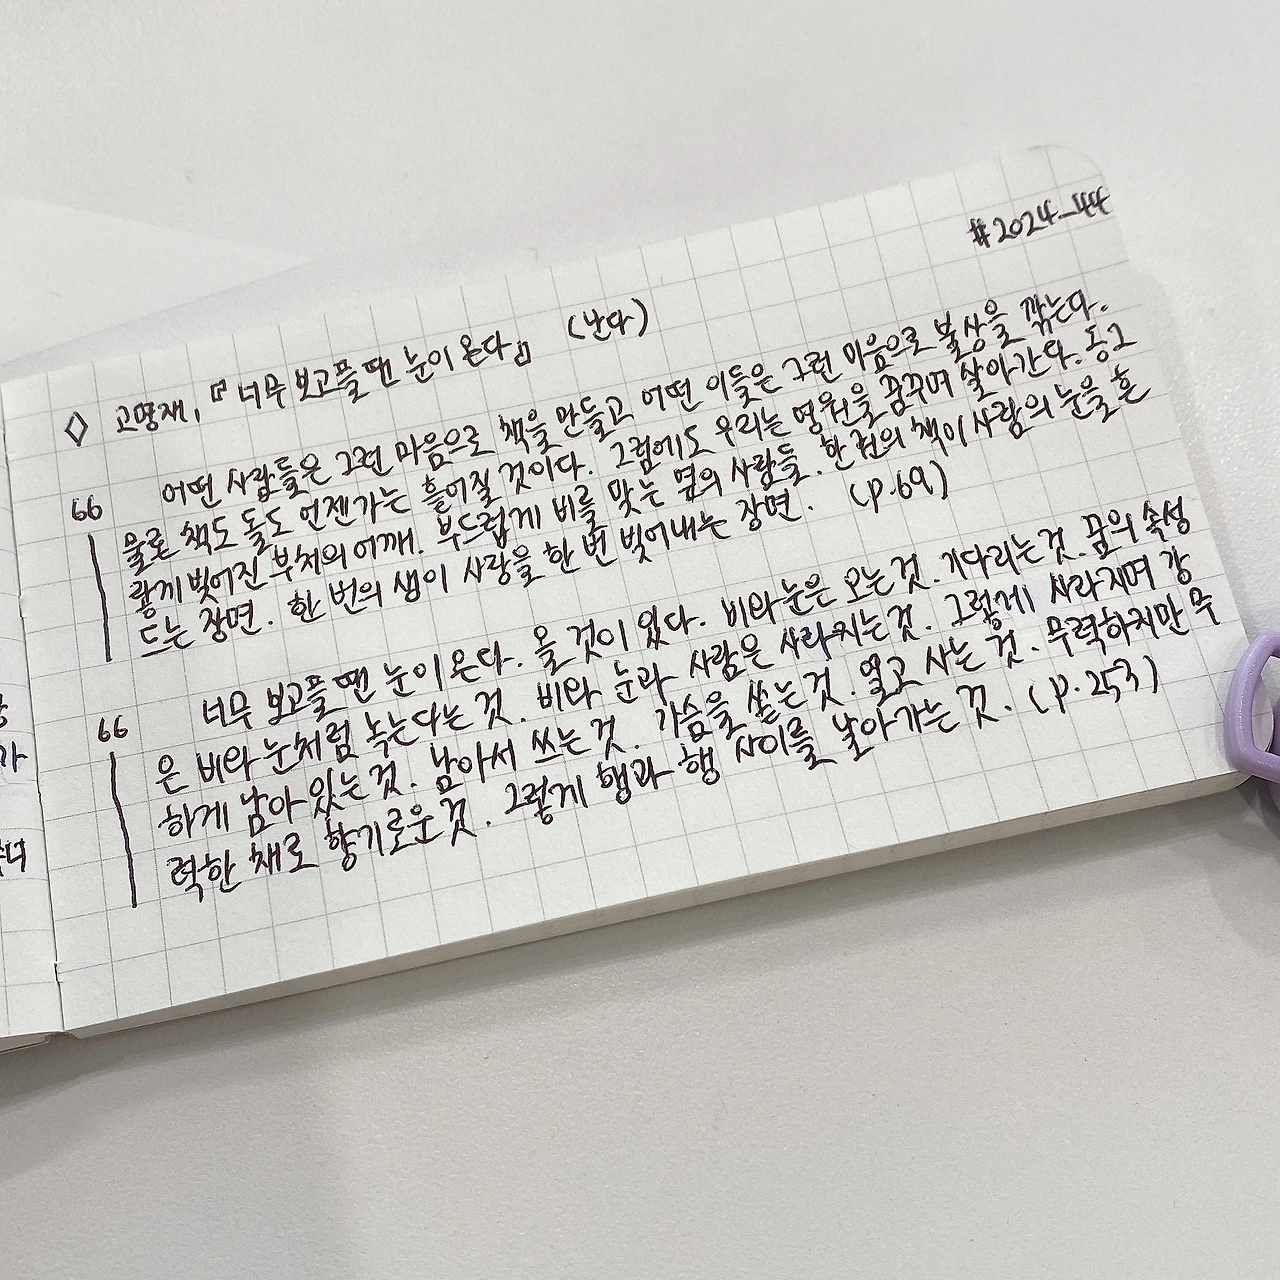 #2024-44
◇ 고명재, 『너무 보고플 땐 눈이 온다』 (난다)
66 어떤 사람들은 그런 마음으로 책을 만들고 어떤 이들은 그런 마음으로 불상을 깎는다.
물론 책도 돌도 언젠가는 흩어질 것이다. 그럼에도 우리는 영원을 꿈꾸며 살아간다. 동그
랗게 벗어진 부처의 어깨. 부드럽게 비를 맞는 옆의 사람들. 한 권의 책이 사람의 눈을 흔
드는 장면. 한 번의 생이 사랑을 한 번 벗어내는 장면. (p.69)
66 너무 보고플 땐 눈이 온다. 올 것이 있다. 비와 눈은 오는 것. 기다리는 것. 꿈의 속성
은 비와 눈처럼 녹는다는 것. 비와 눈과 사람은 사라지는 것. 그렇게 사라지며 강
하게 남아 있는 것. 남아서 쓰는 것. 가슴을 쏟는 것. 열고 사는 것. 무력하지만 무
력한 채로 향기로운 것. 그렇게 행과 행 사이를 날아가는 것. (p.253)
가